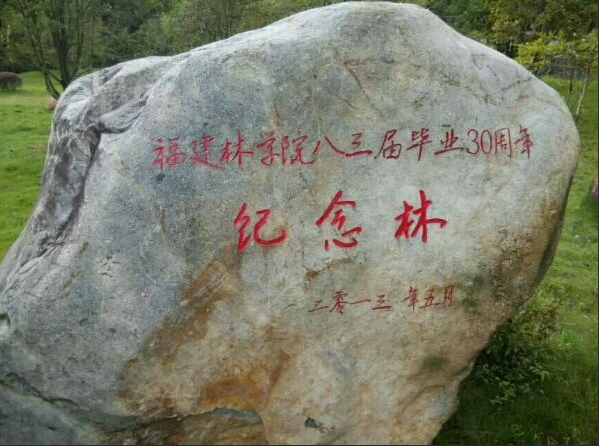 福建林学院八三届毕业30周年
纪念林
二零一三年五月